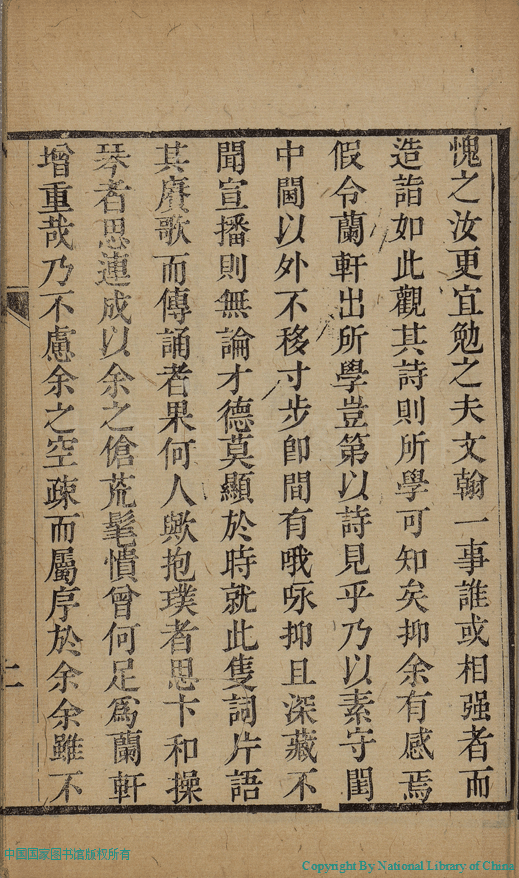 愧之汝更宜勉之夫文翰一事誰或相强者而
造詣如此觀其詩則所學可知矣抑余有感焉
假令蘭軒出所學豈第以詩見乎乃以素守閨
中閫以外不移寸步卽間有哦咏抑且深藏不
聞宣播則無論才德莫顯於時就此隻詞片語
其賡歌而傳誦者果何人歟抱璞者思卞和操
琴者思連成以余之傖荒髦憒曾何足爲蘭軒
增重哉乃不慮余之空疎而屬序於余余雖不
二
中国国家图书馆版权所有
Copyright By National Library of China